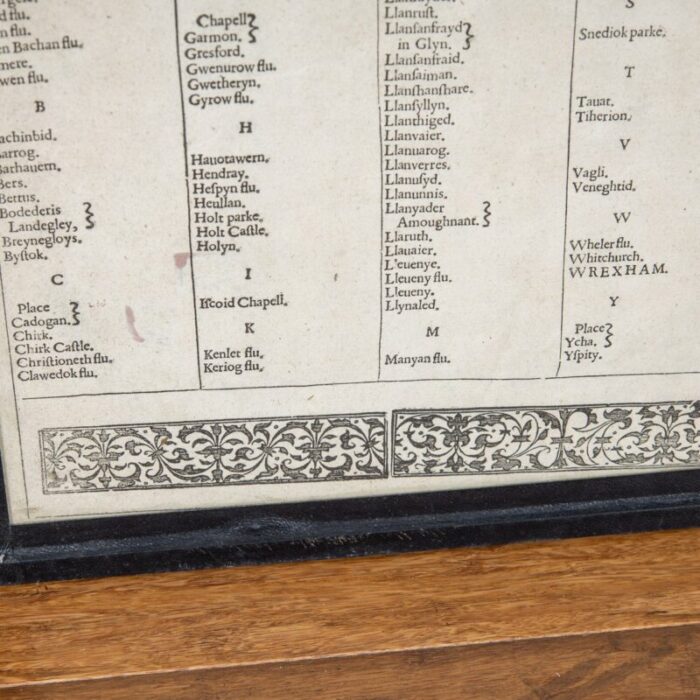 flu.
n flu.
en Bachan flu.
mere.
wen flu.
B
achinbid.
arrog.
Barhauem.
Bers.
Bettus.
Bodederis
Landegley,
Breynegloys.
Byſtok.
C
Place
Cadogan.
Chirk.
Chirk Caſtle.
Chriſtioneth flu.
Clawedok flu.
Chapell
Garmon.
Gresford.
Gwenurow flu.
Gwetheryn.
Gyrow flu.
H
Hauotawern.
Hendray.
Heſpyn flu.
Heullan.
Holt parke.
Holt Caſtle.
Holyn.
I
Iſcoid Chapell.
K
Kenlet flu.
Keriog flu.
Llanruſt.
Llanſanfrayd
in Glyn.
Llanſanfraid.
Llanſaiman.
Llanſhanſhare.
Llanſyllyn.
Llanthiged.
Llanvaier.
Llanuarog.
Llanverres.
Llanuſyd.
Llanunnis.
Llanyader
Amoughnant.
Llaruth.
Llauaier.
L'euenye.
Lleueny flu.
Lleueny.
Llynaled.
M
Manyan flu.
S
Snediok parke.
T
Tauat.
Tiherion.
V
Vagli.
Veneghtid.
W
Wheler flu.
Whitchurch.
WREXHAM.
Y
Place
Ycha.
Yſpity.